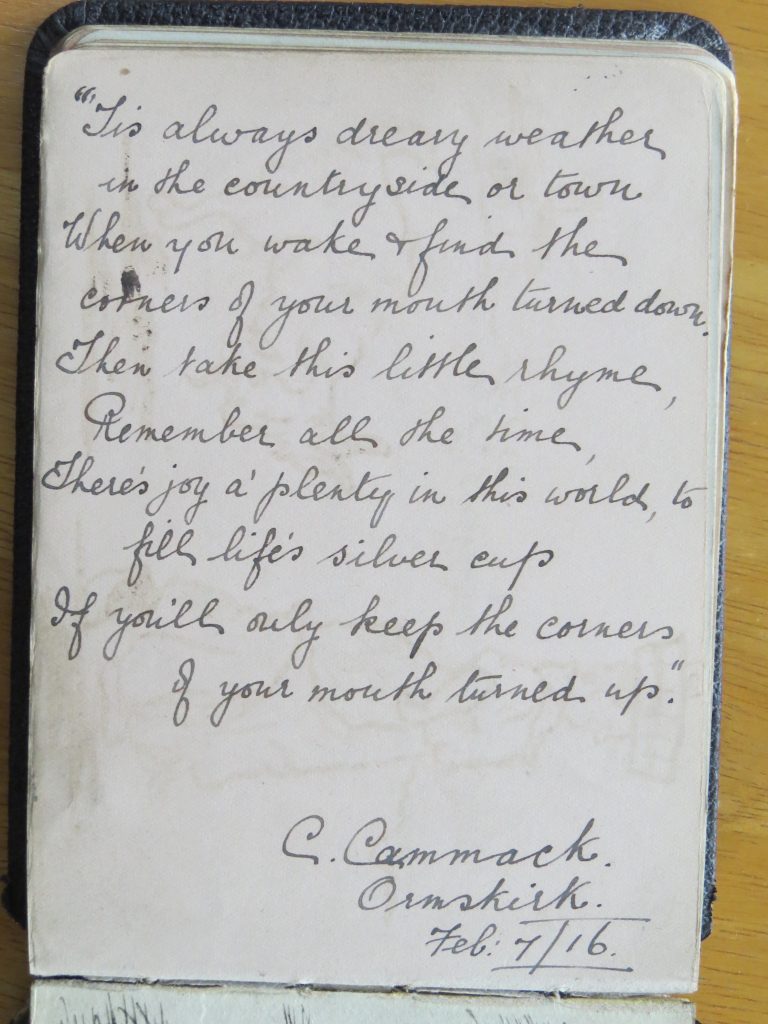 "'Tis always dreary weather
in the countryside or town
When you wake & find the
corners of your mouth turned down.
Then take this little rhyme,
Remember all the time,
There's joy a' plenty in this world, to
fill life's silver cup
If you'll only keep the corners
of your mouth turned up."
C. Cammack.
Ormskirk.
Feb: 7/16.